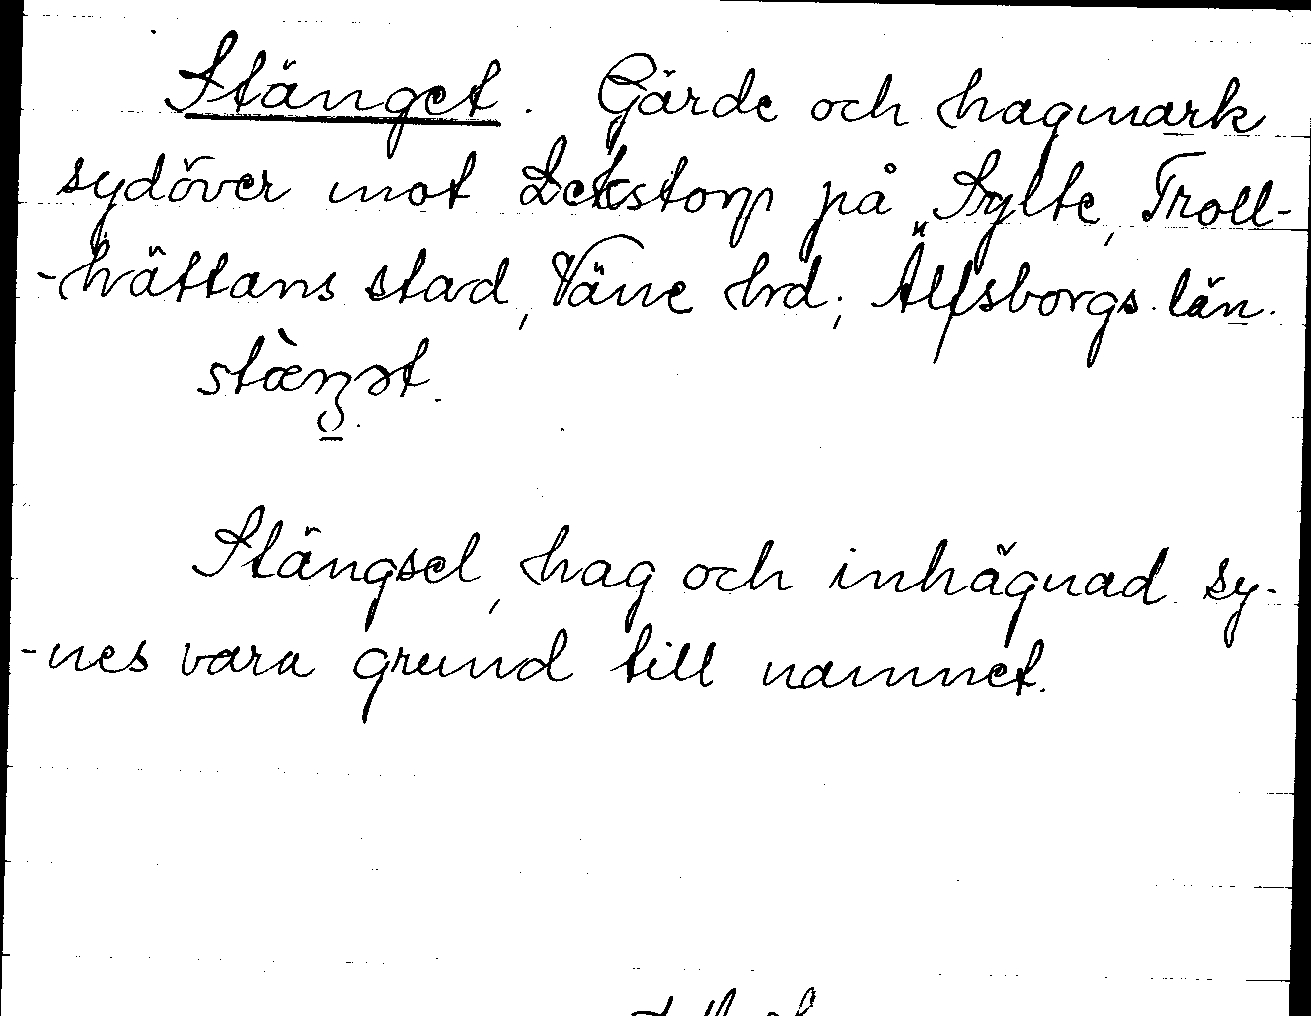 Stänget. Gärde och hagmark
sydöver mot Lekstorp på Sylte, Troll-
-hättans stad, Väne hrd; Älfsborgs län.
Stängsel, hag och inhägnad sy-
-nes vara grund till namnet.